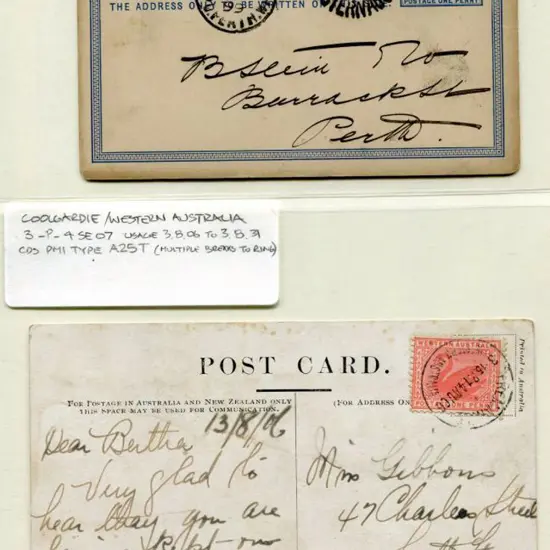 THE ADDRESS ONLY TO BE WRITTEN ON
POSTAGE ONE PENNY
PERTH
B Stein & Co
Barrack St
Perth.
COOLGARDIE/WESTERN AUSTRALIA
3-P-4 SE07 USAGE 3.8.06 TO 3.5.31
CDS PMI TYPE A25T (MULTIPLE BREAKS TO RING)
POST CARD.
WESTERN AUSTRALIA
ONE PENNY
Printed in Australia
FOR POSTAGE IN AUSTRALIA AND NEW ZEALAND ONLY
THIS SPACE MAY BE USED FOR COMMUNICATION.
(FOR ADDRESS ON
13/8/06
Dear Bertha
Very glad to
hear that you are
Miss Gibbons
47 Charles Street